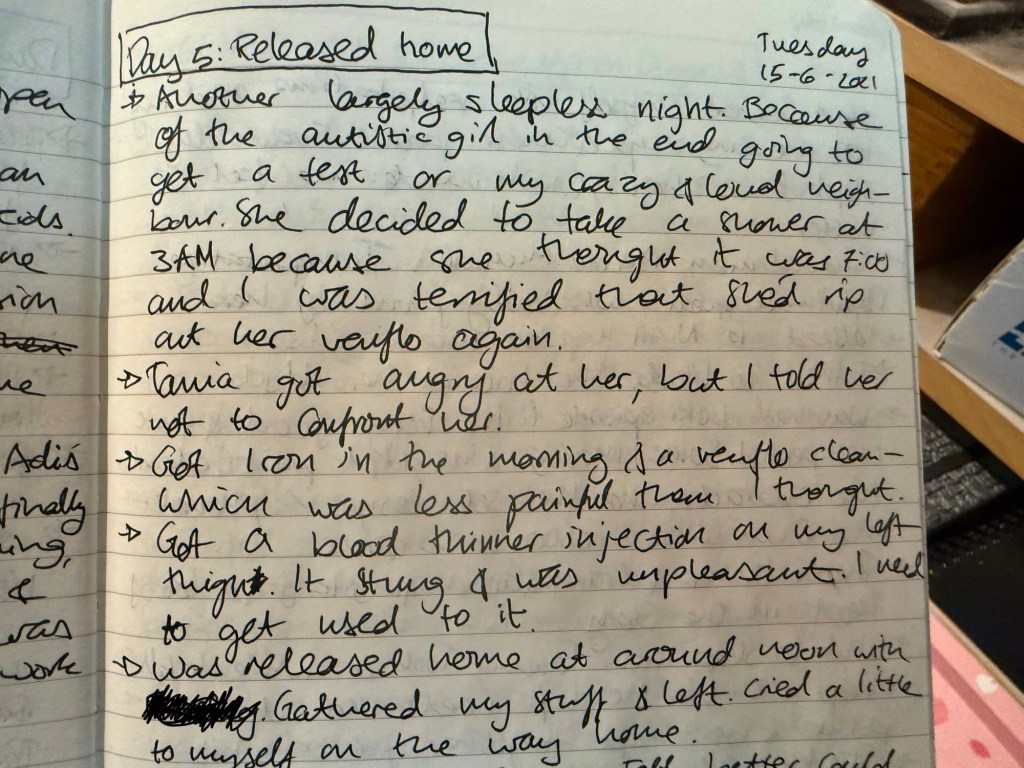 Day 5: Released home
Tuesday
15-6-2021
→ Another largely sleepless night. Because
of the autistic girl in the end going to
get a test or my crazy & loud neigh-
bour. She decided to take a shower at
3AM because she thought it was 7:00
and I was terrified that she'd rip
out her venflo again.
→ Tania got angry at her, but I told her
not to confront her.
→ Got Iron in the morning & a venflo clean-
which was less painful than I thought.
→ Got a blood thinner injection on my left
thigh. It stung & was unpleasant. I need
to get used to it.
→ Was released home at around noon with
Gathered my stuff & left. Cried a little
to myself on the way home.
better could
pen
an
ne
sion
ne
Adiś
finally
ing,
&
was
work